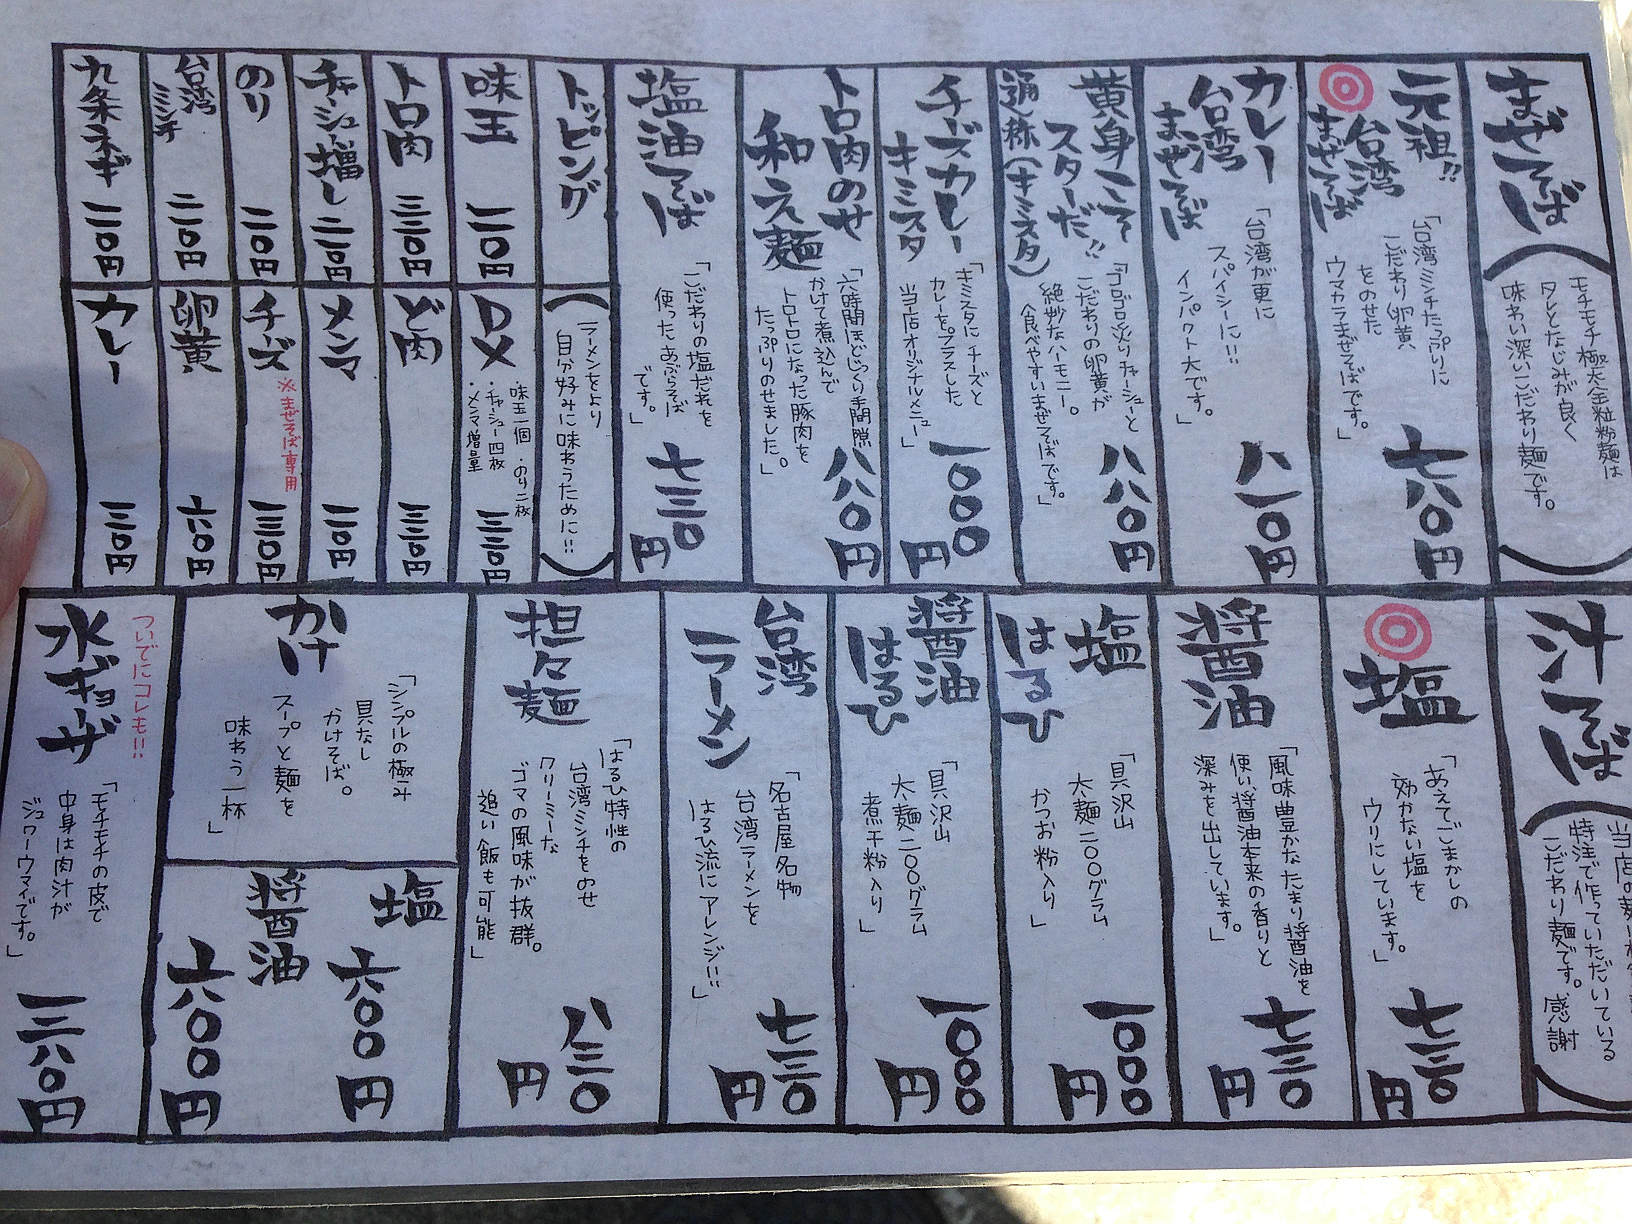 まぜそば
モチモチ極太全粒粉麺は
タレとなじみが良く
味わい深いこだわり麺です。
元祖!!
台湾
まぜそば
「台湾ミンチたっぷりに
こだわり卵黄
をのせた
ウマカラまぜそばです。」
七八〇円
カレー
台湾
まぜそば
「台湾が更に
スパイシーに!!
インパクト大です。」
八一〇円
黄身こそ
スターだ!!
通称(キミスタ)
「ゴロゴロ炙りチャーシューと
こだわりの卵黄が
絶妙なハーモニー。
食べやすいまぜそばです。」
八八〇円
チーズカレー
キミスタ
「キミスタにチーズと
カレーをプラスした
当店オリジナルメニュー」
一〇〇〇円
トロ肉のせ
和え麺
「六時間ほどじっくり手間隙
かけて煮込んで
トロトロになった豚肉を
たっぷりのせました。」
八八〇円
塩油そば
「こだわりの塩だれを
使ったあぶらそば
です。」
七三〇円
トッピング
(ラーメンをより
自分好みに味わうために!!)
味玉
一一〇円
DX
味玉一個・のり二枚
・チャーシュー四枚
・メンマ増量
三三〇円
トロ肉
三三〇円
ど肉
三三〇円
チャーシュー増し
二一〇円
メンマ
一一〇円
のり
一一〇円
チーズ
※まぜそば専用
一三〇円
台湾
ミンチ
二一〇円
卵黄
六〇円
九条ネギ
一一〇円
カレー
一三〇円
汁そば
特注で作っていただいている
こだわり麺です。感謝
塩
「あえてごまかしの
効かない塩を
ウリにしています。」
七三〇円
醤油
「風味豊かなたまり醤油を
使い、醤油本来の香りと
深みを出しています。」
七三〇円
塩
はるひ
「具沢山
太麺二〇〇グラム
かつお粉入り」
一〇〇〇円
醤油
はるひ
「具沢山
太麺二〇〇グラム
煮干粉入り」
一〇〇〇円
台湾
ラーメン
「名古屋名物
台湾ラーメンを
はるひ流にアレンジ!!」
七三〇円
担々麺
「はるひ特性の
台湾ミンチをのせ
クリーミーな
ゴマの風味が抜群。
追い飯も可能」
八三〇円
かけ
「シンプルの極み
具なし
かけそば。
スープと麺を
味わう一杯」
塩
六〇〇円
醤油
六〇〇円
ついでにコレも!!
水ギョーザ
「モチモチの皮で
中身は肉汁が
ジュワーウマイです。」
三八〇円